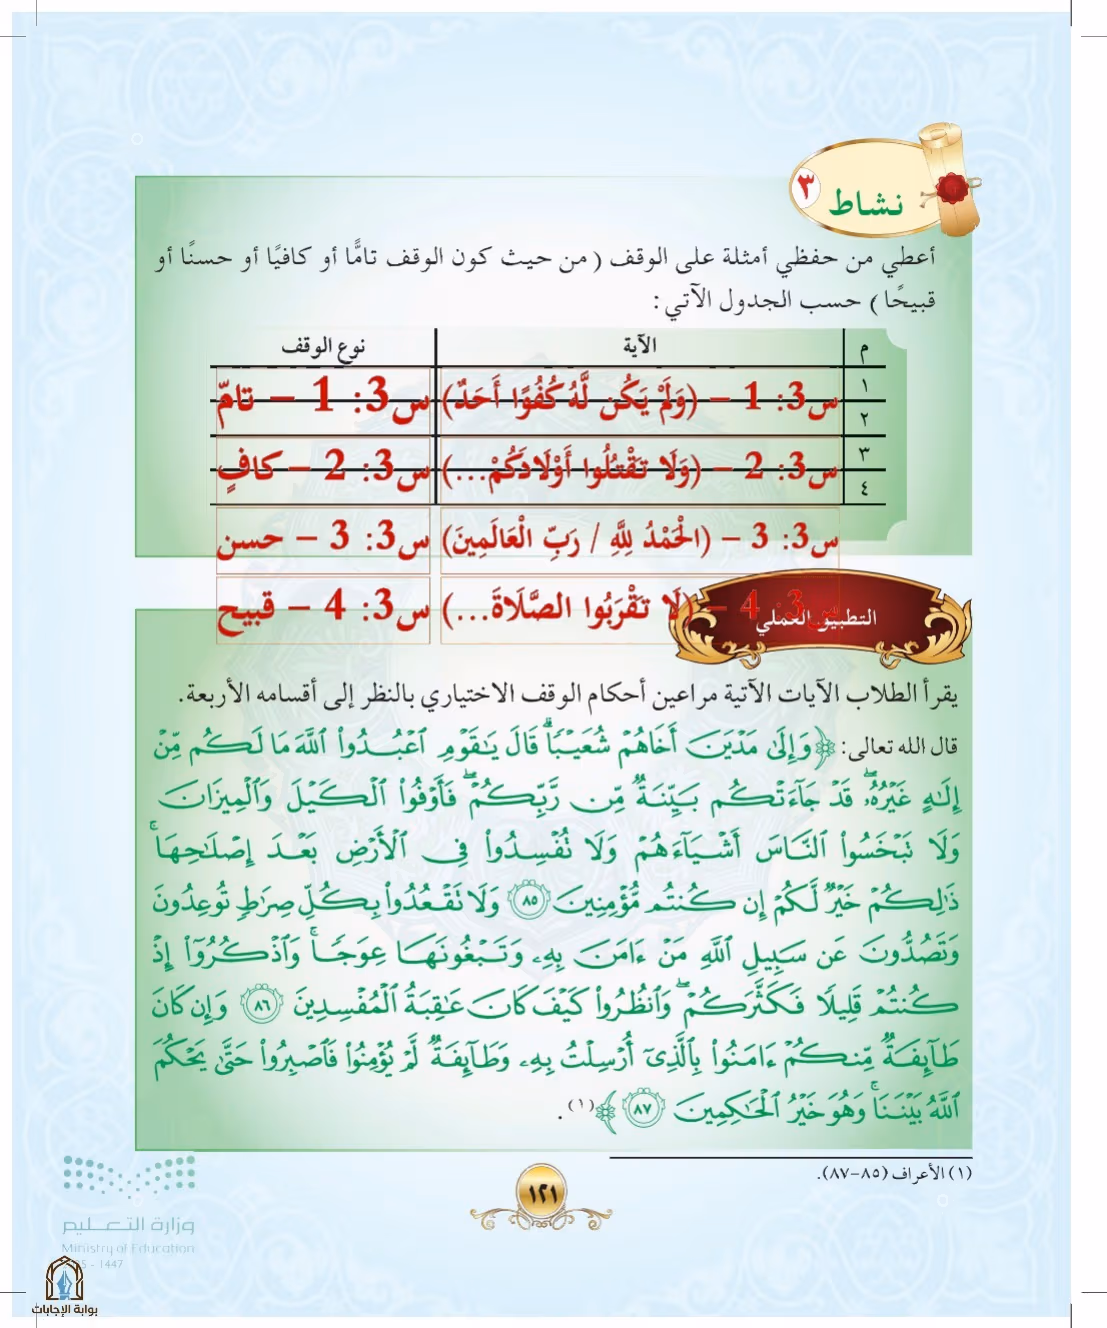 نشاط ٣
أعطي من حفظي أمثلة على الوقف ( من حيث كون الوقف تامًّا أو كافيًا أو حسنًا أو
قبيحًا ) حسب الجدول الآتي :
م الآية نوع الوقف
١ س3: 1 – (وَلَمْ يَكُن لَّهُ كُفُوًا أَحَدٌ) س3: 1 – تامّ
٢
٣ س3: 2 – (وَلَا تَقْتُلُوا أَوْلَادَكُمْ...) س3: 2 – كافٍ
٤
س3: 3 – (الْحَمْدُ لِلَّهِ / رَبِّ الْعَالَمِينَ) س3: 3 – حسن
س3: 4 – (لَا تَقْرَبُوا الصَّلَاةَ...) س3: 4 – قبيح
التطبيق العملي
يقرأ الطلاب الآيات الآتية مراعين أحكام الوقف الاختياري بالنظر إلى أقسامه الأربعة.
قال الله تعالى: ﴿وَإِلَىٰ مَدْيَنَ أَخَاهُمْ شُعَيْبًا ۗ قَالَ يَٰقَوْمِ ٱعْبُدُوا۟ ٱللَّهَ مَا لَكُم مِّنْ
إِلَٰهٍ غَيْرُهُۥ ۖ قَدْ جَآءَتْكُم بَيِّنَةٌ مِّن رَّبِّكُمْ ۖ فَأَوْفُوا۟ ٱلْكَيْلَ وَٱلْمِيزَانَ
وَلَا تَبْخَسُوا۟ ٱلنَّاسَ أَشْيَآءَهُمْ وَلَا تُفْسِدُوا۟ فِى ٱلْأَرْضِ بَعْدَ إِصْلَٰحِهَا ۚ
ذَٰلِكُمْ خَيْرٌ لَّكُمْ إِن كُنتُم مُّؤْمِنِينَ ٨٥ وَلَا تَقْعُدُوا۟ بِكُلِّ صِرَٰطٍ تُوعِدُونَ
وَتَصُدُّونَ عَن سَبِيلِ ٱللَّهِ مَنْ ءَامَنَ بِهِۦ وَتَبْغُونَهَا عِوَجًا ۚ وَٱذْكُرُوٓا۟ إِذْ
كُنتُمْ قَلِيلًا فَكَثَّرَكُمْ ۖ وَٱنظُرُوا۟ كَيْفَ كَانَ عَٰقِبَةُ ٱلْمُفْسِدِينَ ٨٦ وَإِن كَانَ
طَآئِفَةٌ مِّنكُمْ ءَامَنُوا۟ بِٱلَّذِىٓ أُرْسِلْتُ بِهِۦ وَطَآئِفَةٌ لَّمْ يُؤْمِنُوا۟ فَٱصْبِرُوا۟ حَتَّىٰ يَحْكُمَ
ٱللَّهُ بَيْنَنَا ۚ وَهُوَ خَيْرُ ٱلْحَٰكِمِينَ ٨٧﴾(١).
(١) الأعراف (٨٥-٨٧).
١٢١
وزارة التعليم
Ministry of Education
5 - 1447
بوابة الإجابات